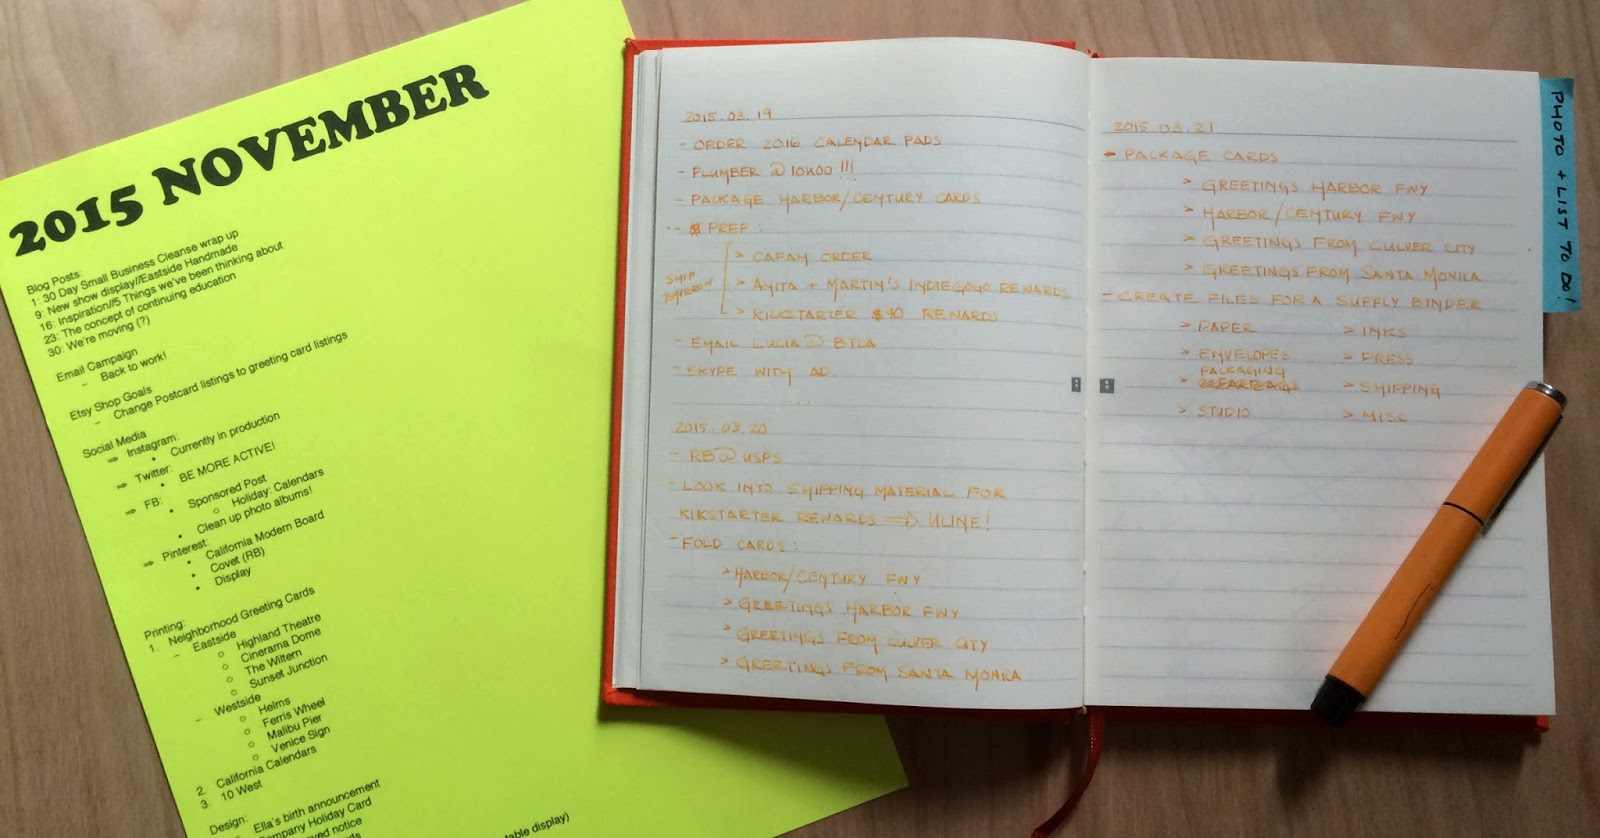 2015 NOVEMBER
Blog Posts:
1: 30 Day Small Business Cleanse wrap up
9: New show display//Eastside Handmade
16: Inspiration//5 Things we've been thinking about
23: The concept of continuing education
30: We're moving (?)
Email Campaign
- Back to work!
Etsy Shop Goals
- Change Postcard listings to greeting card listings
Social Media
⇒ Instagram:
• Currently in production
⇒ Twitter:
• BE MORE ACTIVE!
⇒ FB:
• Sponsored Post
○ Holiday: Calendars
• Clean up photo albums!
⇒ Pinterest:
• California Modern Board
• Covet (RB)
• Display
Printing:
1. Neighborhood Greeting Cards
- Eastside
○ Highland Theatre
○ Cinerama Dome
○ The Wiltern
○ Sunset Junction
- Westside
○ Helms
○ Ferris Wheel
○ Malibu Pier
○ Venice Sign
2. California Calendars
3. 10 West
Design:
- Ella's birth announcement
Company Holiday Card
notice
display)
2015.03.19
- ORDER 2016 CALENDAR PADS
- PLUMBER @ 10H00 !!!
- PACKAGE HARBOR/CENTURY CARDS
- PREP:
SHIP TOMORROW
> CAFAM ORDER
> ANITA + MARTIN'S INDIEGOGO REWARDS
> KICKSTARTER $40 REWARDS
- EMAIL LUCIA @ BTLA
- SKYPE WITH AD.
....
2015.03.20
- RB @ USPS
- LOOK INTO SHIPPING MATERIAL FOR
KIKSTARTER REWARDS ⇒ ULINE!
- FOLD CARDS:
> HARBOR/CENTURY FWY
> GREETINGS HARBOR FWY
> GREETINGS FROM CULVER CITY
> GREETINGS FROM SANTA MONICA
2015.03.21
- PACKAGE CARDS
> GREETINGS HARBOR FWY
> HARBOR/CENTURY FWY
> GREETINGS FROM CULVER CITY
> GREETINGS FROM SANTA MONICA
- CREATE FILES FOR A SUPPLY BINDER
> PAPER > INKS
> ENVELOPES > PRESS
> PACKAGING > SHIPPING
> STUDIO > MISC
PHOTO + LIST TO DO!